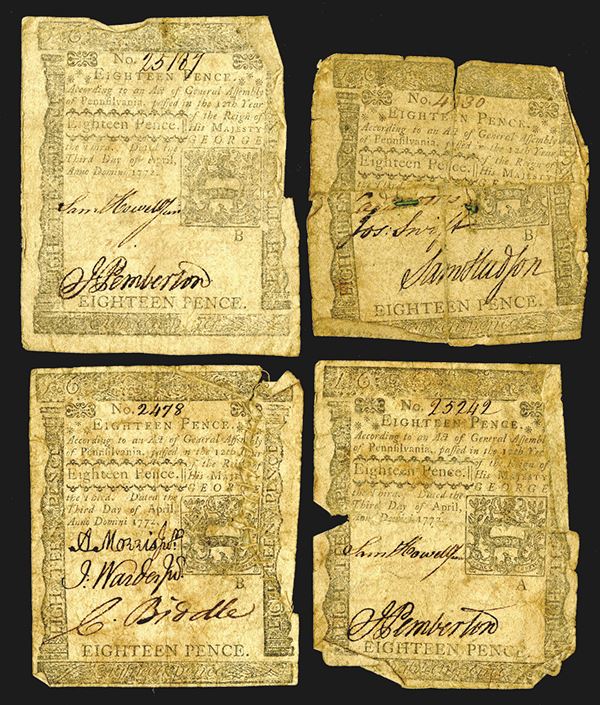 No. 25187
EIGHTEEN PENCE.
According to an Act of General Assembly
of Pennsylvania, passed in the 12th Year
of the Reign of
Eighteen Pence. His MAJESTY
GEORGE
the Third. Dated the
Third Day of April,
Anno Domini 1772.
B
Saml Howell Jun
J Pemberton
EIGHTEEN PENCE.
EIGHTEEN PENCE
No. 30
EIGHTEEN PENCE.
According to an Act of General Assembly
of Pennsylvania, passed in the 12th Year
of the Reign of
Eighteen Pence. His MAJESTY
GEORGE
B
Jos: Swift
Sam Hudson
EIGHTEEN PENCE.
No. 2478
EIGHTEEN PENCE.
According to an Act of General Assembly
of Pennsylvania, passed in the 12th Year
of the Reign of
Eighteen Pence. His MAJESTY
GEORGE
the Third. Dated the
Third Day of April,
Anno Domini 1772.
A Morris Jr.
B
J. Warder Jr.
C. Biddle
EIGHTEEN PENCE.
EIGHTEEN PENCE
No. 25242
EIGHTEEN PENCE.
According to an Act of General Assembly
of Pennsylvania, passed in the 12th Year
of the Reign of
Eighteen Pence. His MAJESTY
GEORGE
the Third. Dated the
Third Day of April,
Anno Domini 1772.
Saml Howell Jun
A
J Pemberton
EIGHTEEN PENCE.